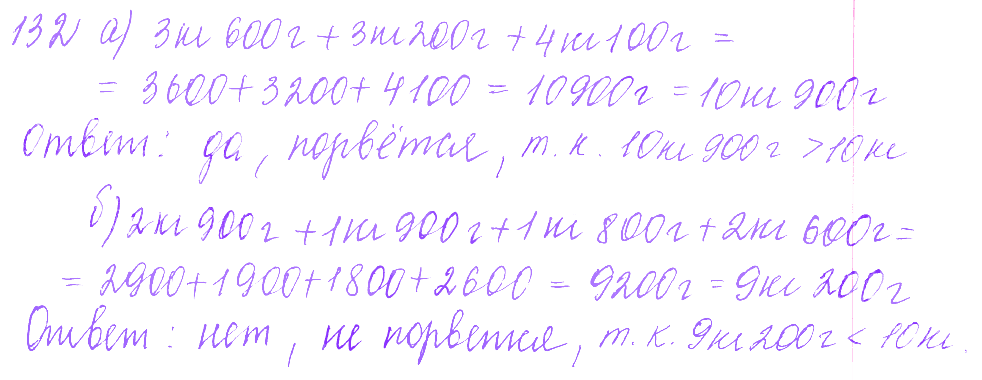 132 а) 3кг 600г + 3кг 200г + 4кг 100г =
= 3600 + 3200 + 4100 = 10900г = 10кг 900г
Ответ: да, порвётся, т.к. 10кг 900г > 10кг
б) 2кг 900г + 1кг 900г + 1кг 800г + 2кг 600г =
= 2900 + 1900 + 1800 + 2600 = 9200г = 9кг 200г
Ответ: нет, не порвется, т.к. 9кг 200г < 10кг.